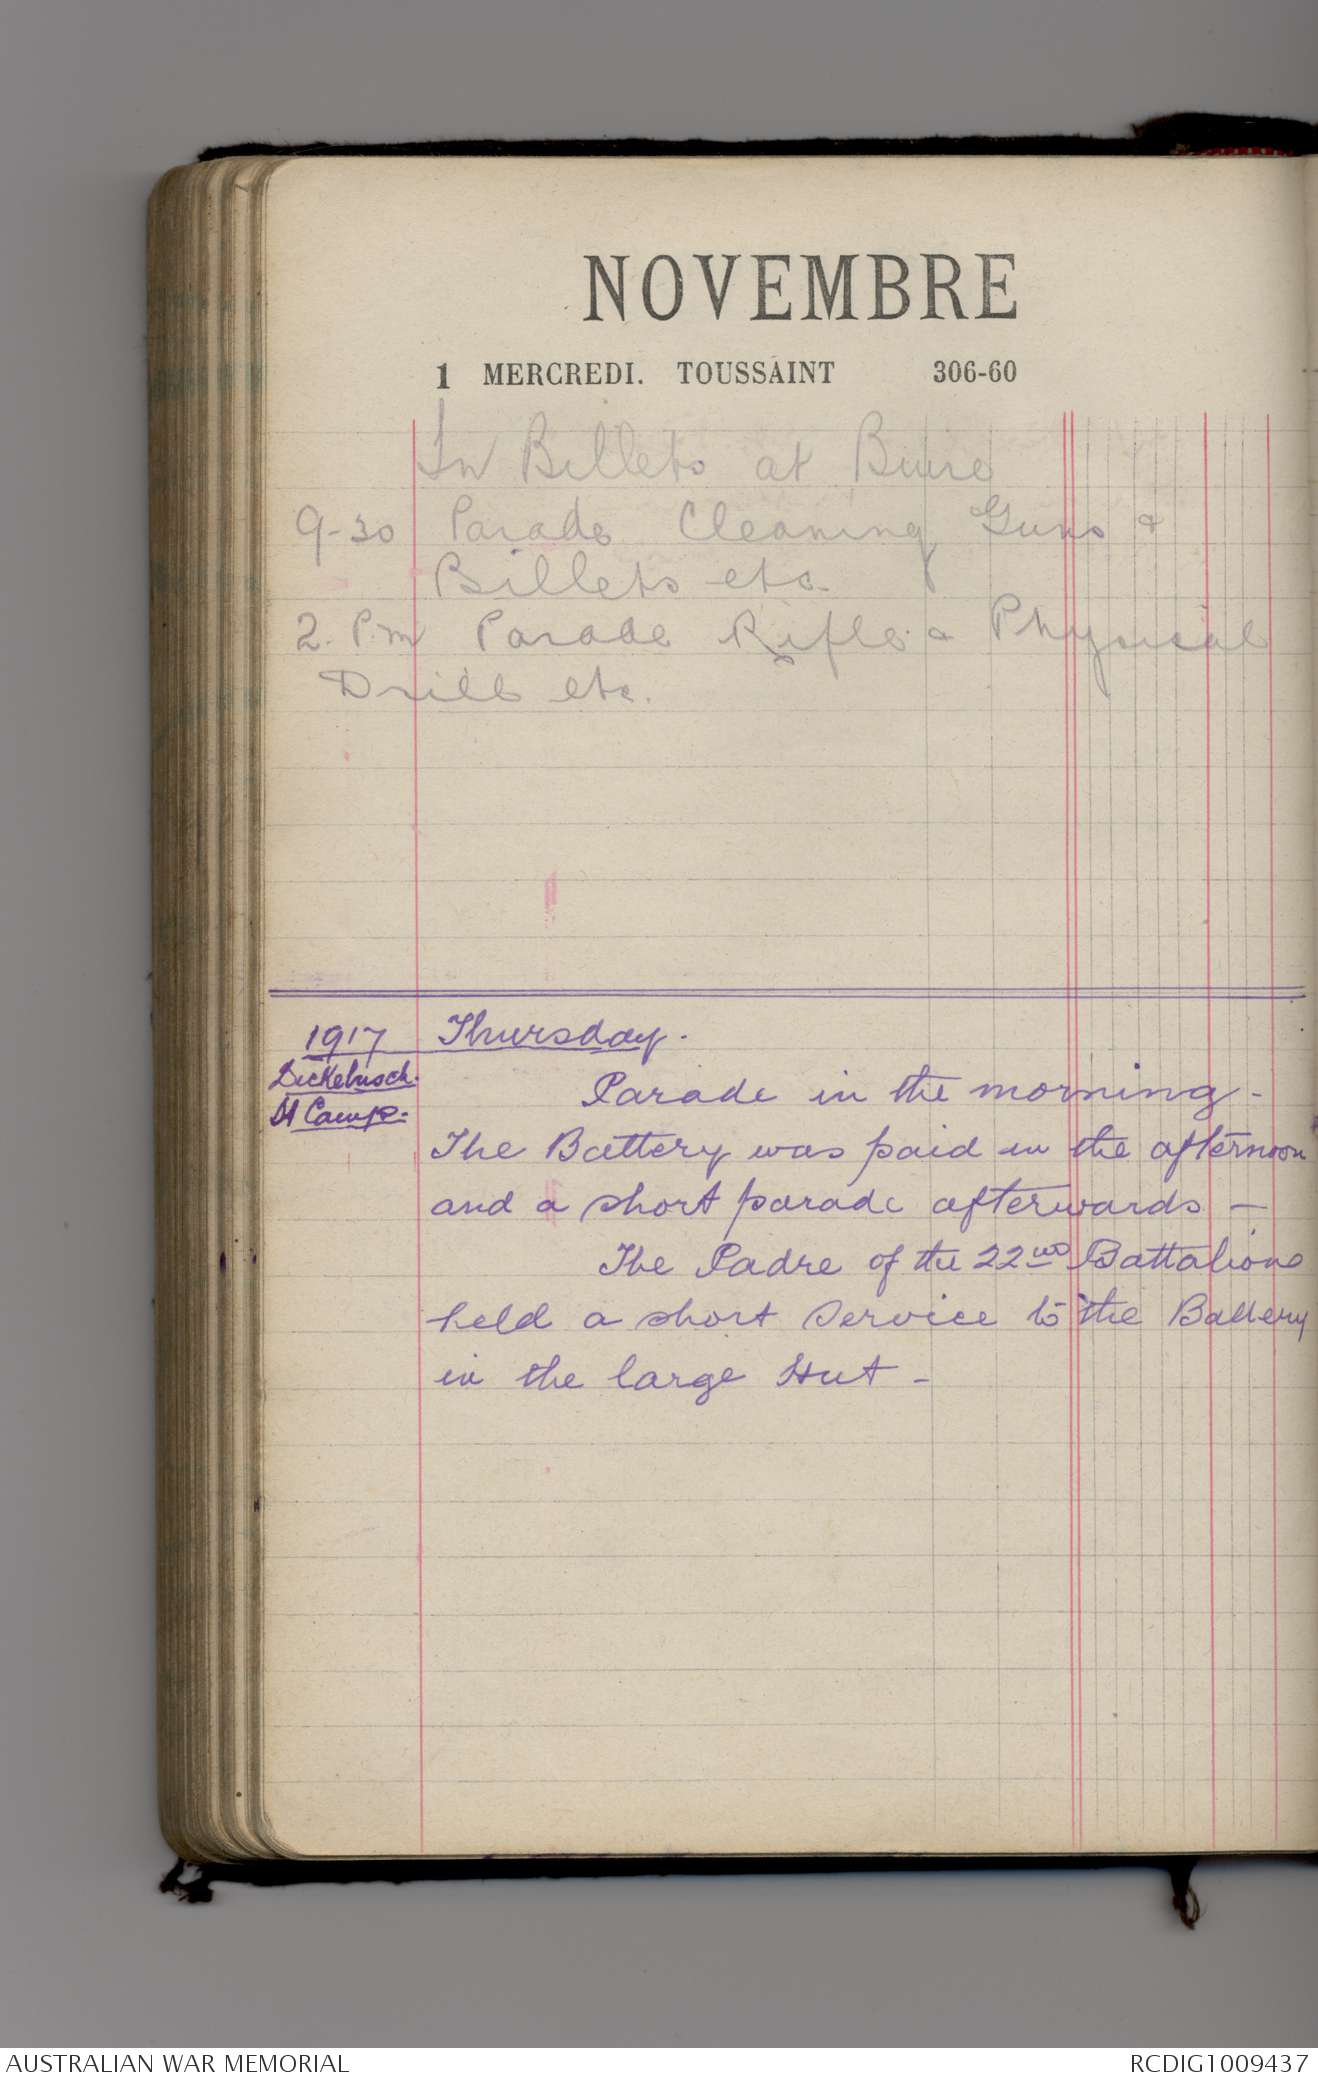 NOVEMBRE
1 MERCREDI. TOUSSAINT 306-60
In Billets at Buire
9-30 Parade Cleaning Guns &
Billets etc.
2. P.m Parade Rifle & Physical
Drill etc.
1917 Thursday.
Dickebusch.
Camp.
Parade in the morning -
The Battery was paid in the afternoon
and a short parade afterwards -
The Padre of the 22nd Battalions
held a short service to the Battery
in the large Hut -
AUSTRALIAN WAR MEMORIAL RCDIG1009437